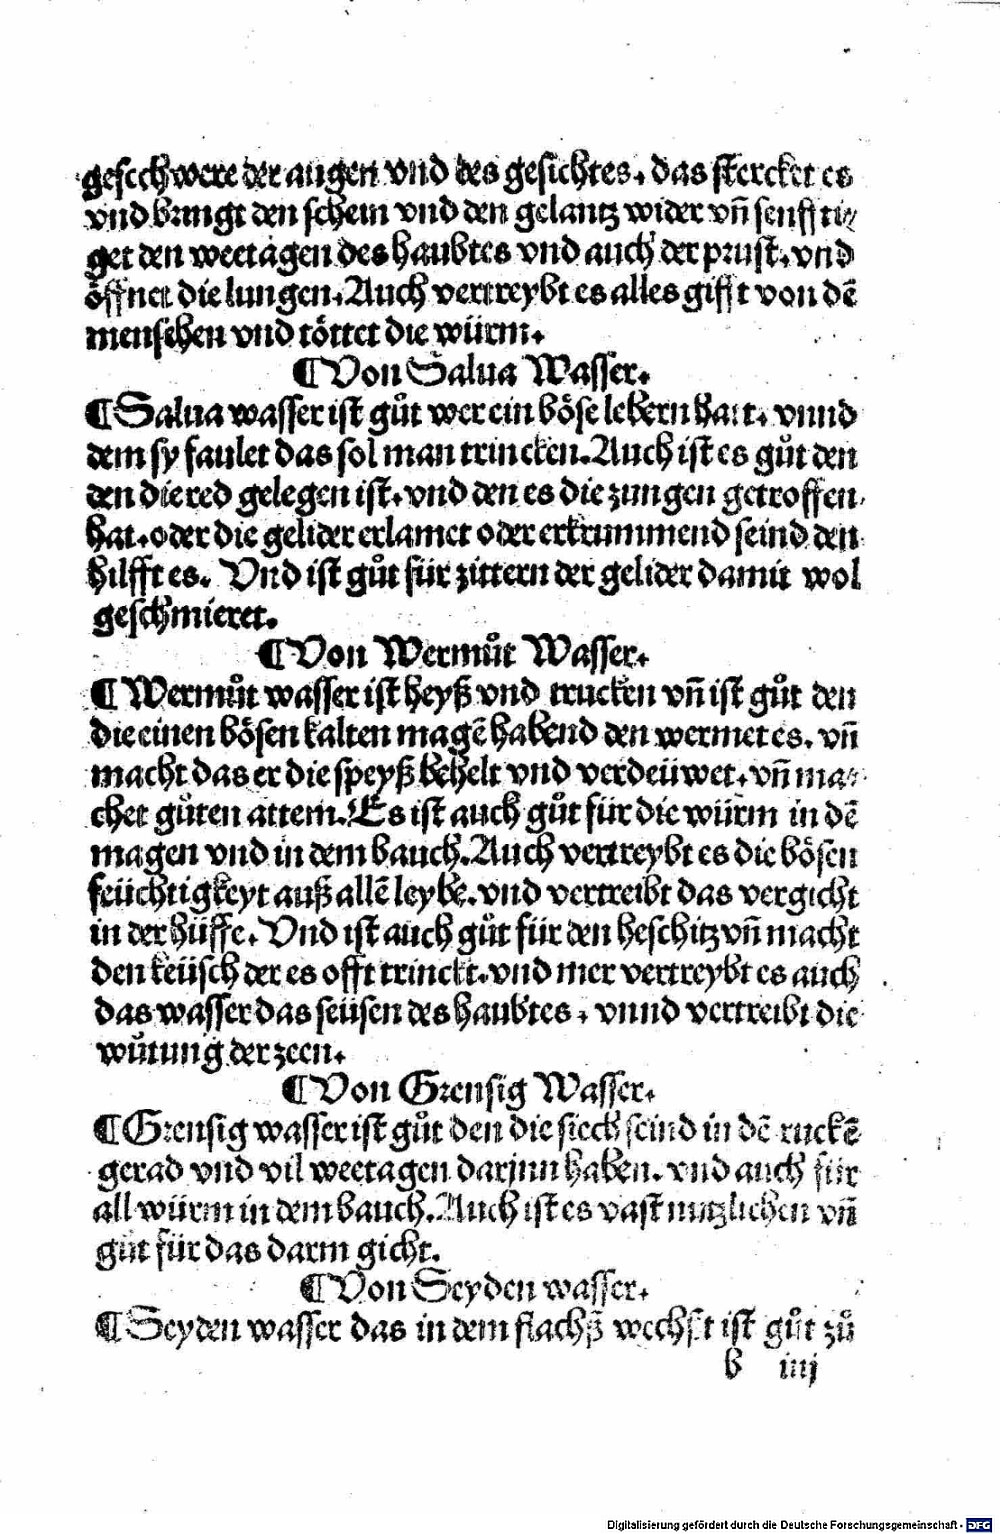 geschwere der augen vnd des gesichtes. das stercket es
vnd bringt den schein vnd den gelantz wider vñ senffti⸗
get den weetagen des haubtes vnd auch der prust. vnd
öffnet die lungen. Auch vertreybt es alles gifft von dē
menschen vnd töttet die würm.
¶Von Salua Wasser.
¶Salua wasser ist gůt wer ein böse lebern hatt. vnnd
dem sy faulet das sol man trincken. Auch ist es gůt den
den die red gelegen ist. vnd den es die zungen getroffen
hat. oder die gelider erlamet oder erkrummend seind den
hilfft es. Vnd ist gůt für zittern der gelider damit wol
geschmieret.
¶Von Wermůt Wasser.
¶Wermůt wasser ist heyß vnd trucken vñ ist gůt den
die einen bösen kalten magē habend den wermet es. vñ
macht das er die speyß behelt vnd verdeüwet. vñ ma⸗
chet gůten attem. Es ist auch gůt für die würm in dē
magen vnd in dem bauch. Auch vertreybt es die bösen
feüchtigkeyt auß allē leybe. vnd vertreibt das vergicht
in der hüffe. Vnd ist auch gůt für den heschitz vñ macht
den keüsch der es offt trinckt. vnd mer vertreybt es auch
das wasser das seüsen des haubtes. vnnd vertreibt die
wůtung der zeen.
¶Von Grensig Wasser.
¶Grensig wasser ist gůt den die siech seind in dē ruckē
gerad vnd vil weetagen darjnn haben. vnd auch für
all würm in dem bauch. Auch ist es vast nutzlichen vñ
gůt für das darm gicht.
¶Von Seyden wasser.
¶Seyden wasser das in dem flachß wechst ist gůt zů
b iiij
Digitalisierung gefördert durch die Deutsche Forschungsgemeinschaft - DFG